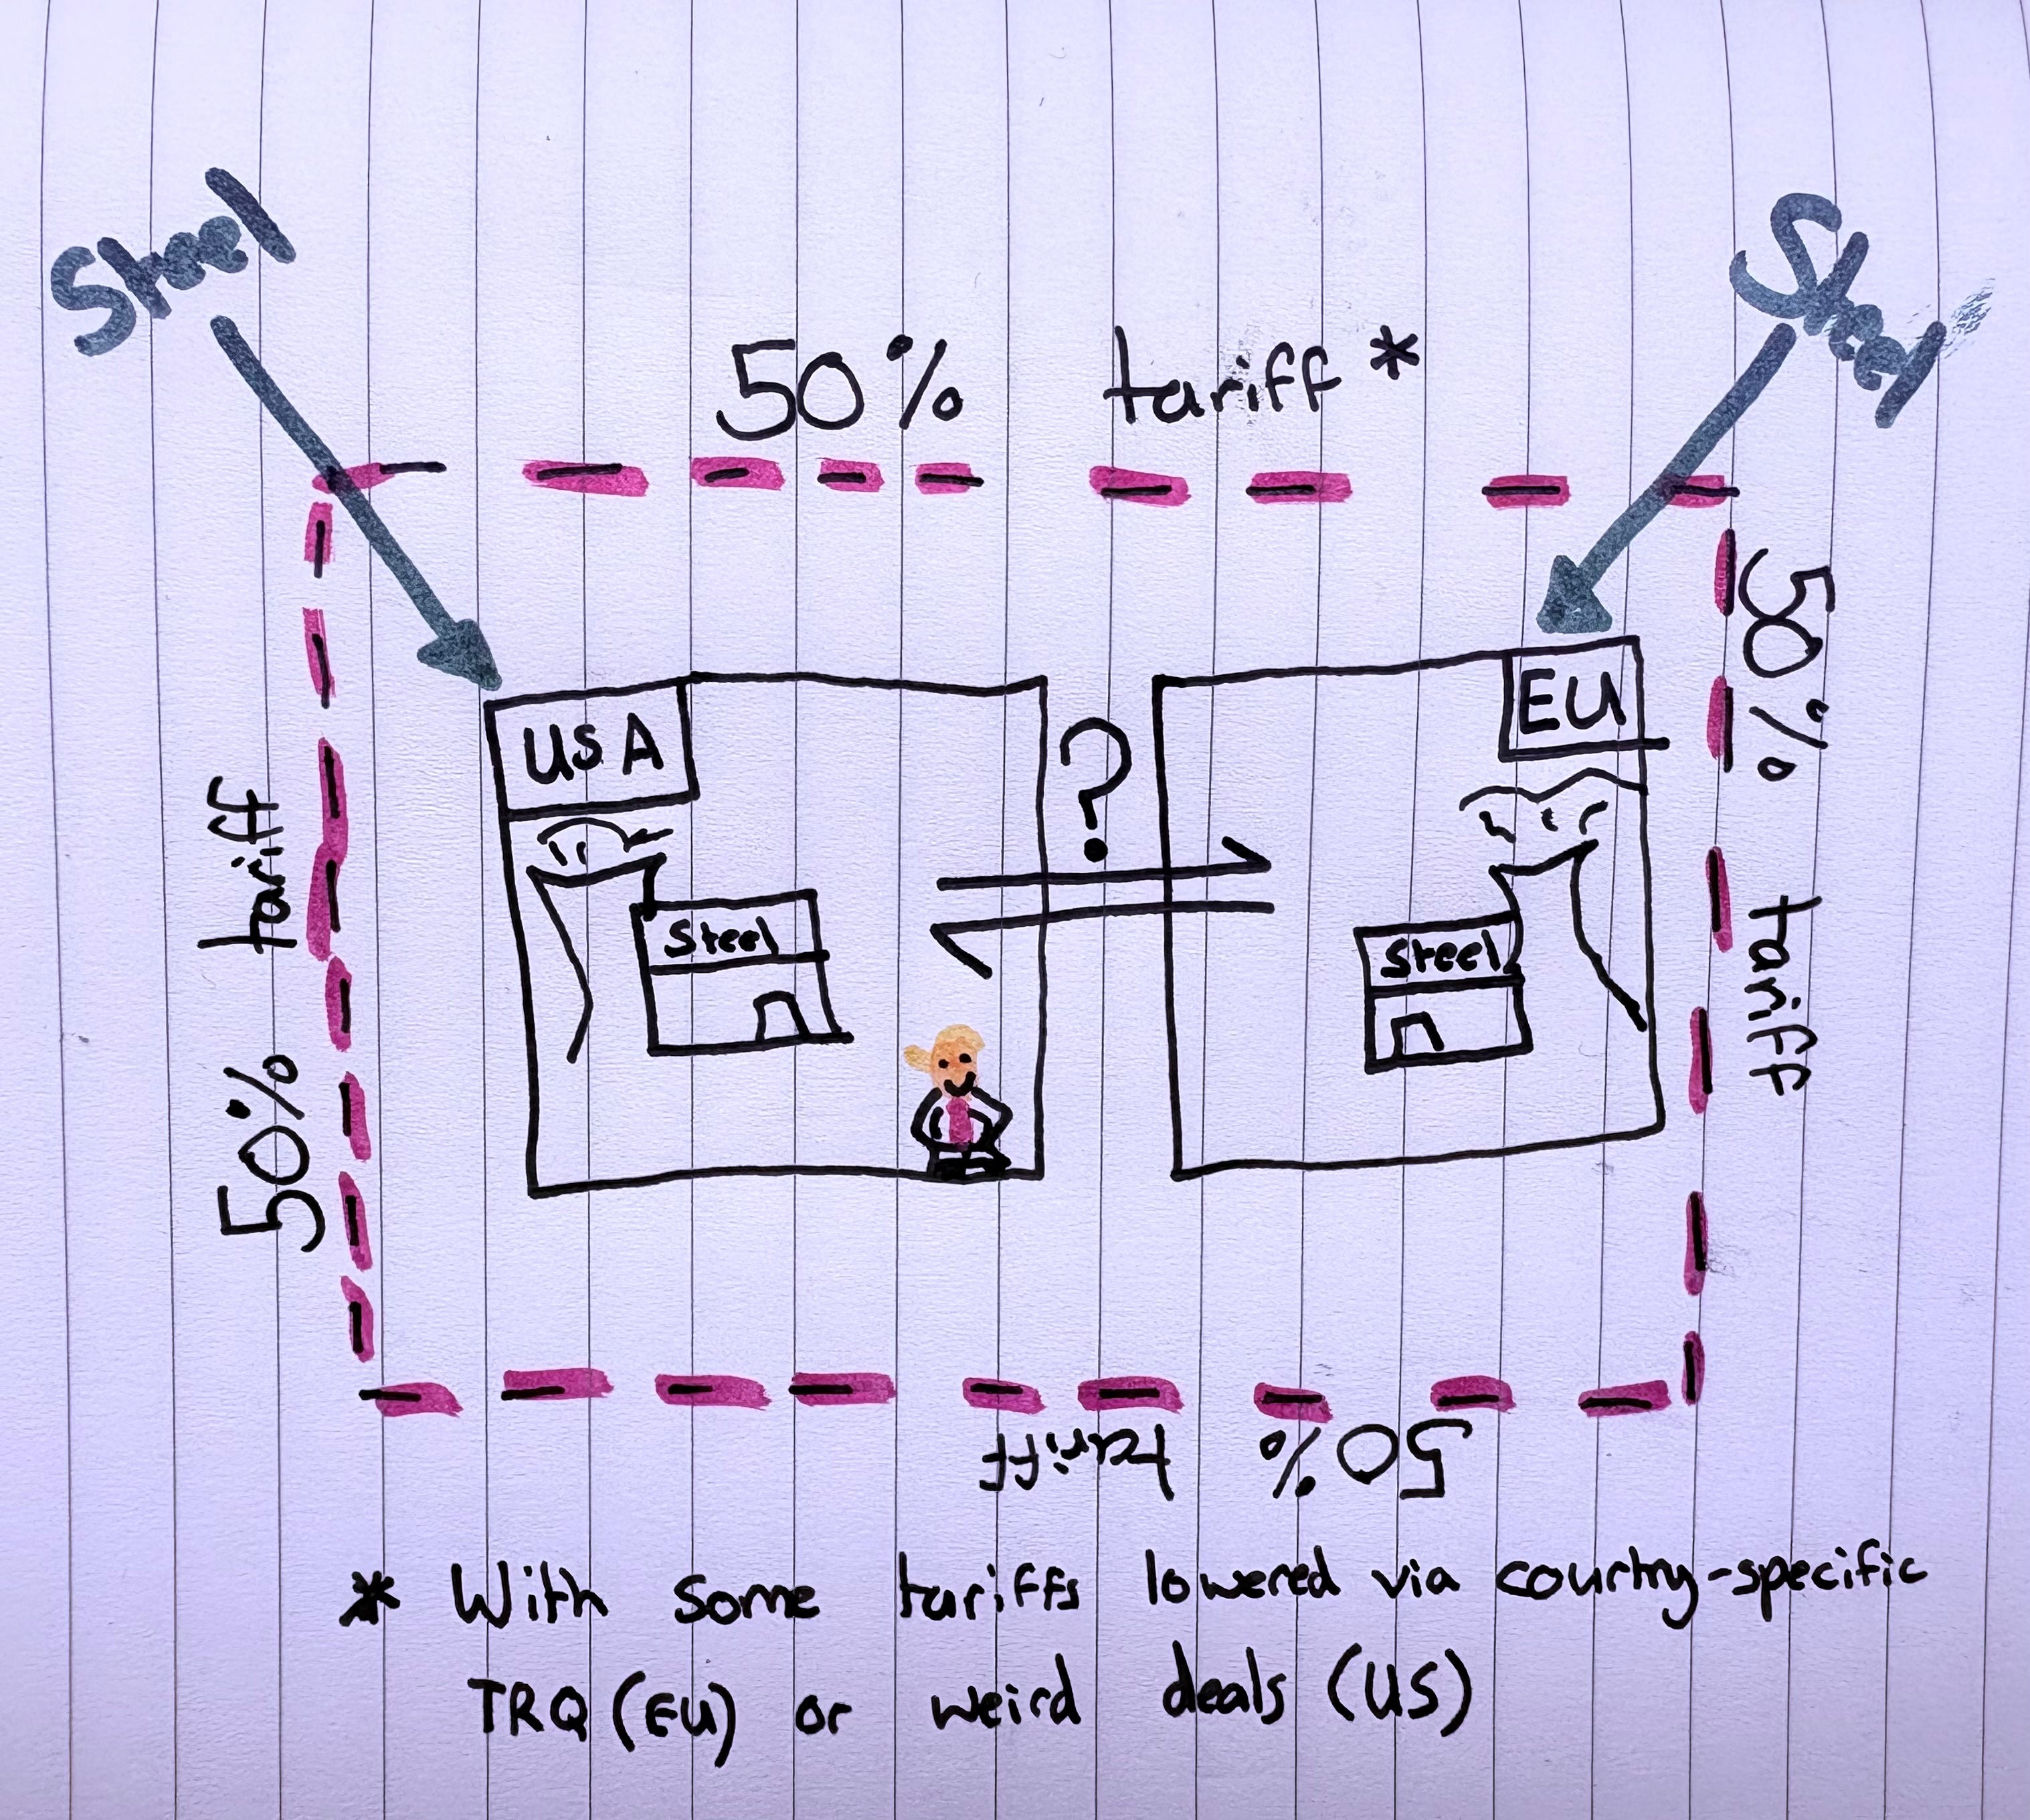 Steel
Steel
50% tariff *
USA
EU
?
50% tariff
50% tariff
Steel
Steel
50% tariff
* With some tariffs lowered via country-specific
TRQ (EU) or weird deals (US)